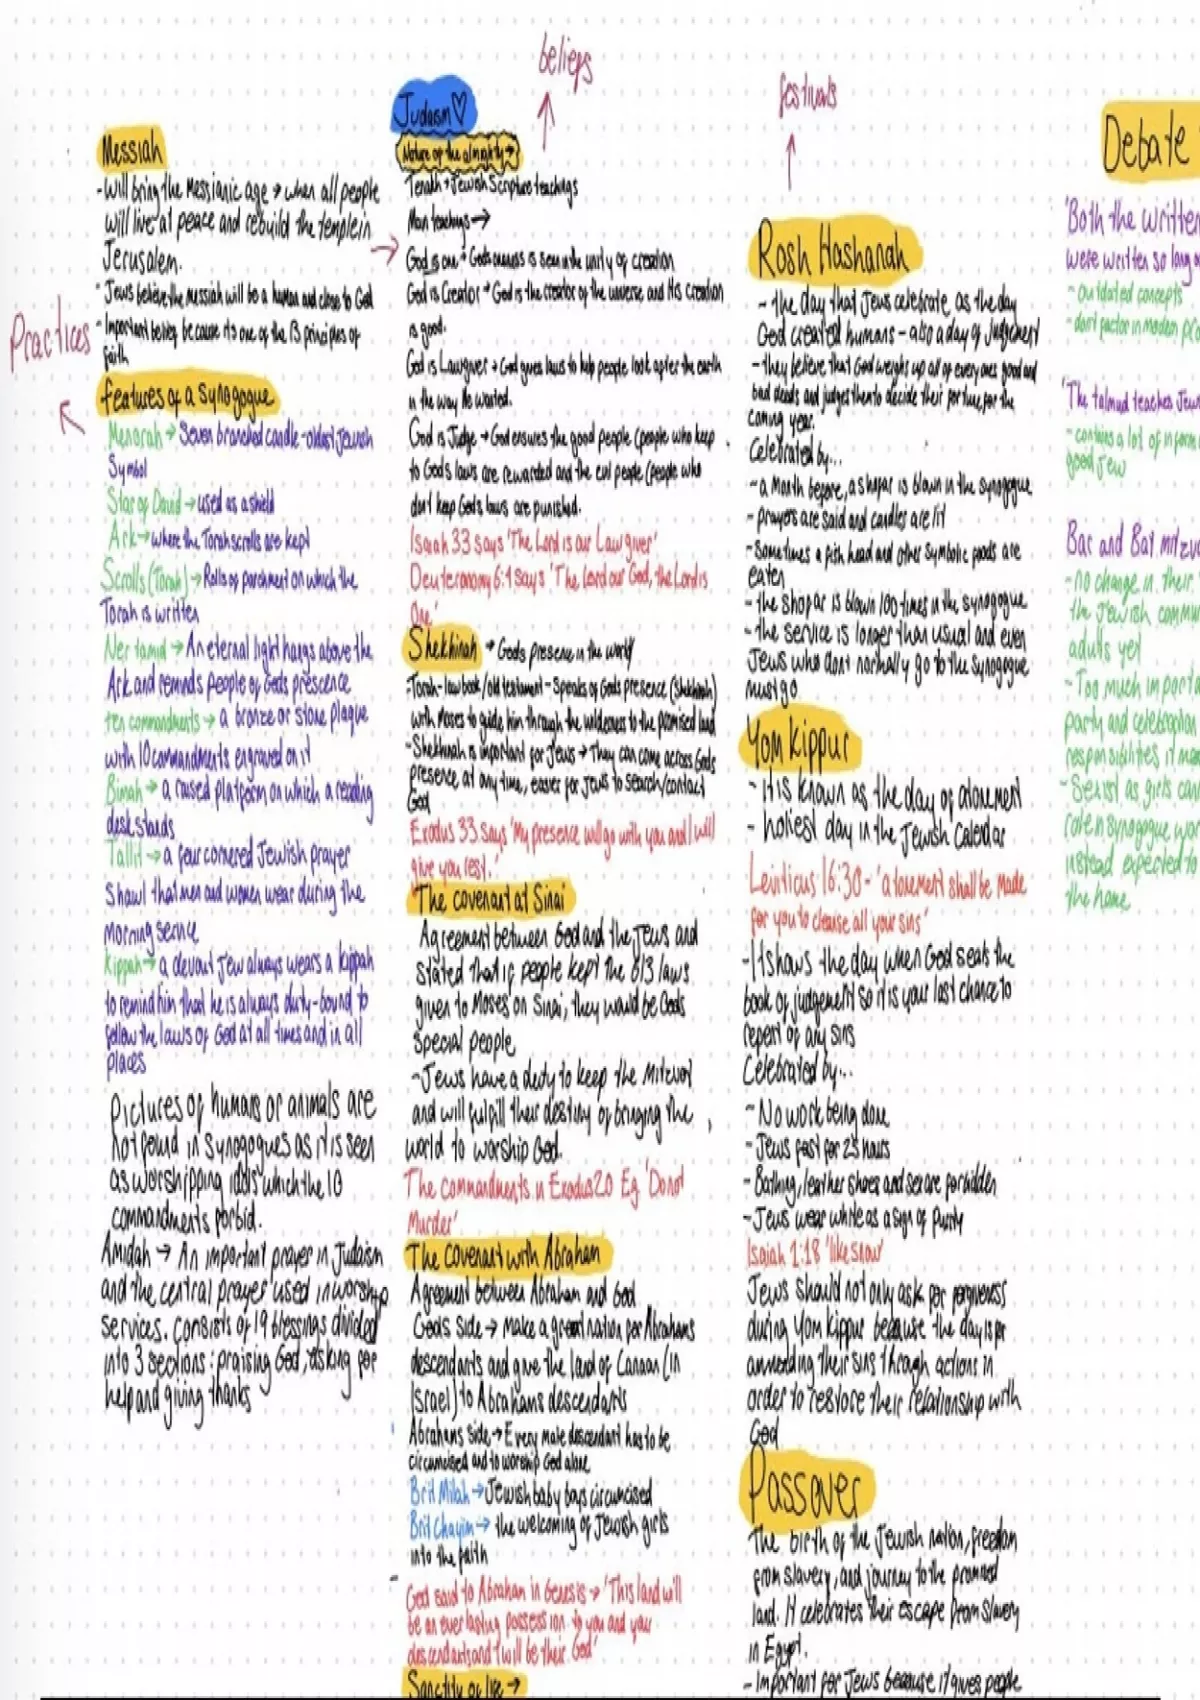 beliefs
festivals
Practices
Messiah
- Will bring the Messianic age → when all people
will live at peace and rebuild the temple in
Jerusalem.
- Jews believe the messiah will be a human and close to God
- Important belief because its one of the 13 principles of
faith
features of a synagogue
Menorah → Seven branched candle - oldest Jewish
Symbol
Star of David → used as a shield
Ark → where the Torah scrolls are kept
Scrolls (Torah) → Rolls of parchment on which the
Torah is written
Ner tamid → An eternal light hangs above the
Ark and reminds people of Gods prescence
ten commandments → a bronze or stone plaque
with 10 commandments engraved on it
Bimah → a raised platform on which a reading
desk stands
Tallit → a four cornered Jewish prayer
Shawl that men and women wear during the
morning service
kippah → a devout Jew always wears a kippah
to remind him that he is always duty-bound to
follow the laws of God at all times and in all
places
Pictures of humans or animals are
not found in synagogues as it is seen
as worshipping idols which the 10
commandments forbid.
Amidah → An important prayer in Judaism
and the central prayer used in worship
services. consists of 19 blessings divided
into 3 sections: praising God, asking for
help and giving thanks
Judaism ♡
Nature of the almighty →
Tenakh → Jewish Scripture teachings
Main teachings →
God is one → Gods oneness is seen in the unity of creation
God is Creator → God is the creator of the universe and His creation
is good.
God is Lawgiver → God gives laws to help people look after the earth
in the way He wanted.
God is Judge → God ensures the good people (people who keep
to God's laws are rewarded and the evil people (people who
don't keep God's laws are punished.
Isaiah 33 says 'The Lord is our Law giver'
Deuteronomy 6:4 says 'The Lord our God, the Lord is
One'
Shekhinah → Gods presence in the world
- Torah - law book/old testament - speaks of Gods presence (Shekhinah)
with Moses to guide him through the wilderness to the promised land
- Shekhinah is important for Jews → They can come across Gods
presence at any time, easier for Jews to search/contact
God
Exodus 33 says 'My presence will go with you and I will
give you rest.'
The covenant at Sinai
Agreement between God and the Jews and
stated that if people kept the 613 laws
given to Moses on Sinai, they would be Gods
special people
- Jews have a duty to keep the Mitzvot
and will fulfill their destiny of bringing the
world to worship God.
The commandments in Exodus 20 Eg. 'Do not
Murder'
The covenant with Abraham
Agreement between Abraham and God
Gods side → Make a great nation for Abrahams
descendants and give the land of Canaan (in
Israel) to Abrahams descendants
Abrahams side → Every male descendant has to be
circumcised and to worship God alone
Brit Milah → Jewish baby boys circumcised
Brit Chayim → the welcoming of Jewish girls
into the faith
God said to Abraham in Genesis → 'This land will
be an everlasting possession to you and your
descendants and I will be their God'
Sanctity of life →
Rosh Hashanah
- the day that Jews celebrate as the day
God created humans - also a day of Judgement
- they believe that God weighs up all of everyones good and
bad deeds and judges them to decide their fortune for the
coming year.
Celebrated by...
- a month before, a shofar is blown in the synagogue
- prayers are said and candles are lit
- Sometimes a fish head and other symbolic foods are
eaten
- the shofar is blown 100 times in the synagogue
- the service is longer than usual and even
Jews who dont normally go to the synagogue
must go
Yom Kippur
- It is known as the day of atonement
- holiest day in the Jewish Calendar
Leviticus 16:30 - 'atonement shall be made
for you to cleanse all your sins'
- It shows the day when God seals the
book of judgement so it is your last chance to
repent of any sins
Celebrated by...
- No work being done
- Jews fast for 25 hours
- Bathing, leather shoes and sex are forbidden
- Jews wear white as a sign of purity
Isaiah 1:18 'like snow'
Jews should not only ask for forgiveness
during Yom Kippur because the day is for
ammending their sins through actions in
order to restore their relationship with
God
Passover
The birth of the Jewish nation, freedom
from slavery, and journey to the promised
land. It celebrates their escape from slavery
in Egypt.
- Important for Jews because it gives people
Debate
'Both the written
were written so long a
- outdated concepts
- don't factor in modern pro
'The talmud teaches Jew
- contains a lot of inform
good Jew
Bar and Bat mitzv
- no change in their
the Jewish commun
adults yet
- Too much importa
party and celebration
responsibilities it
- Sexist as girls can
role in synagogue wor
instead expected to
the home